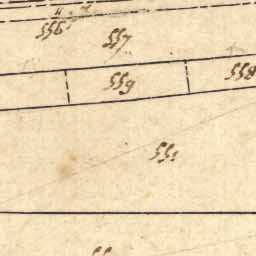 556
557
559
558
551